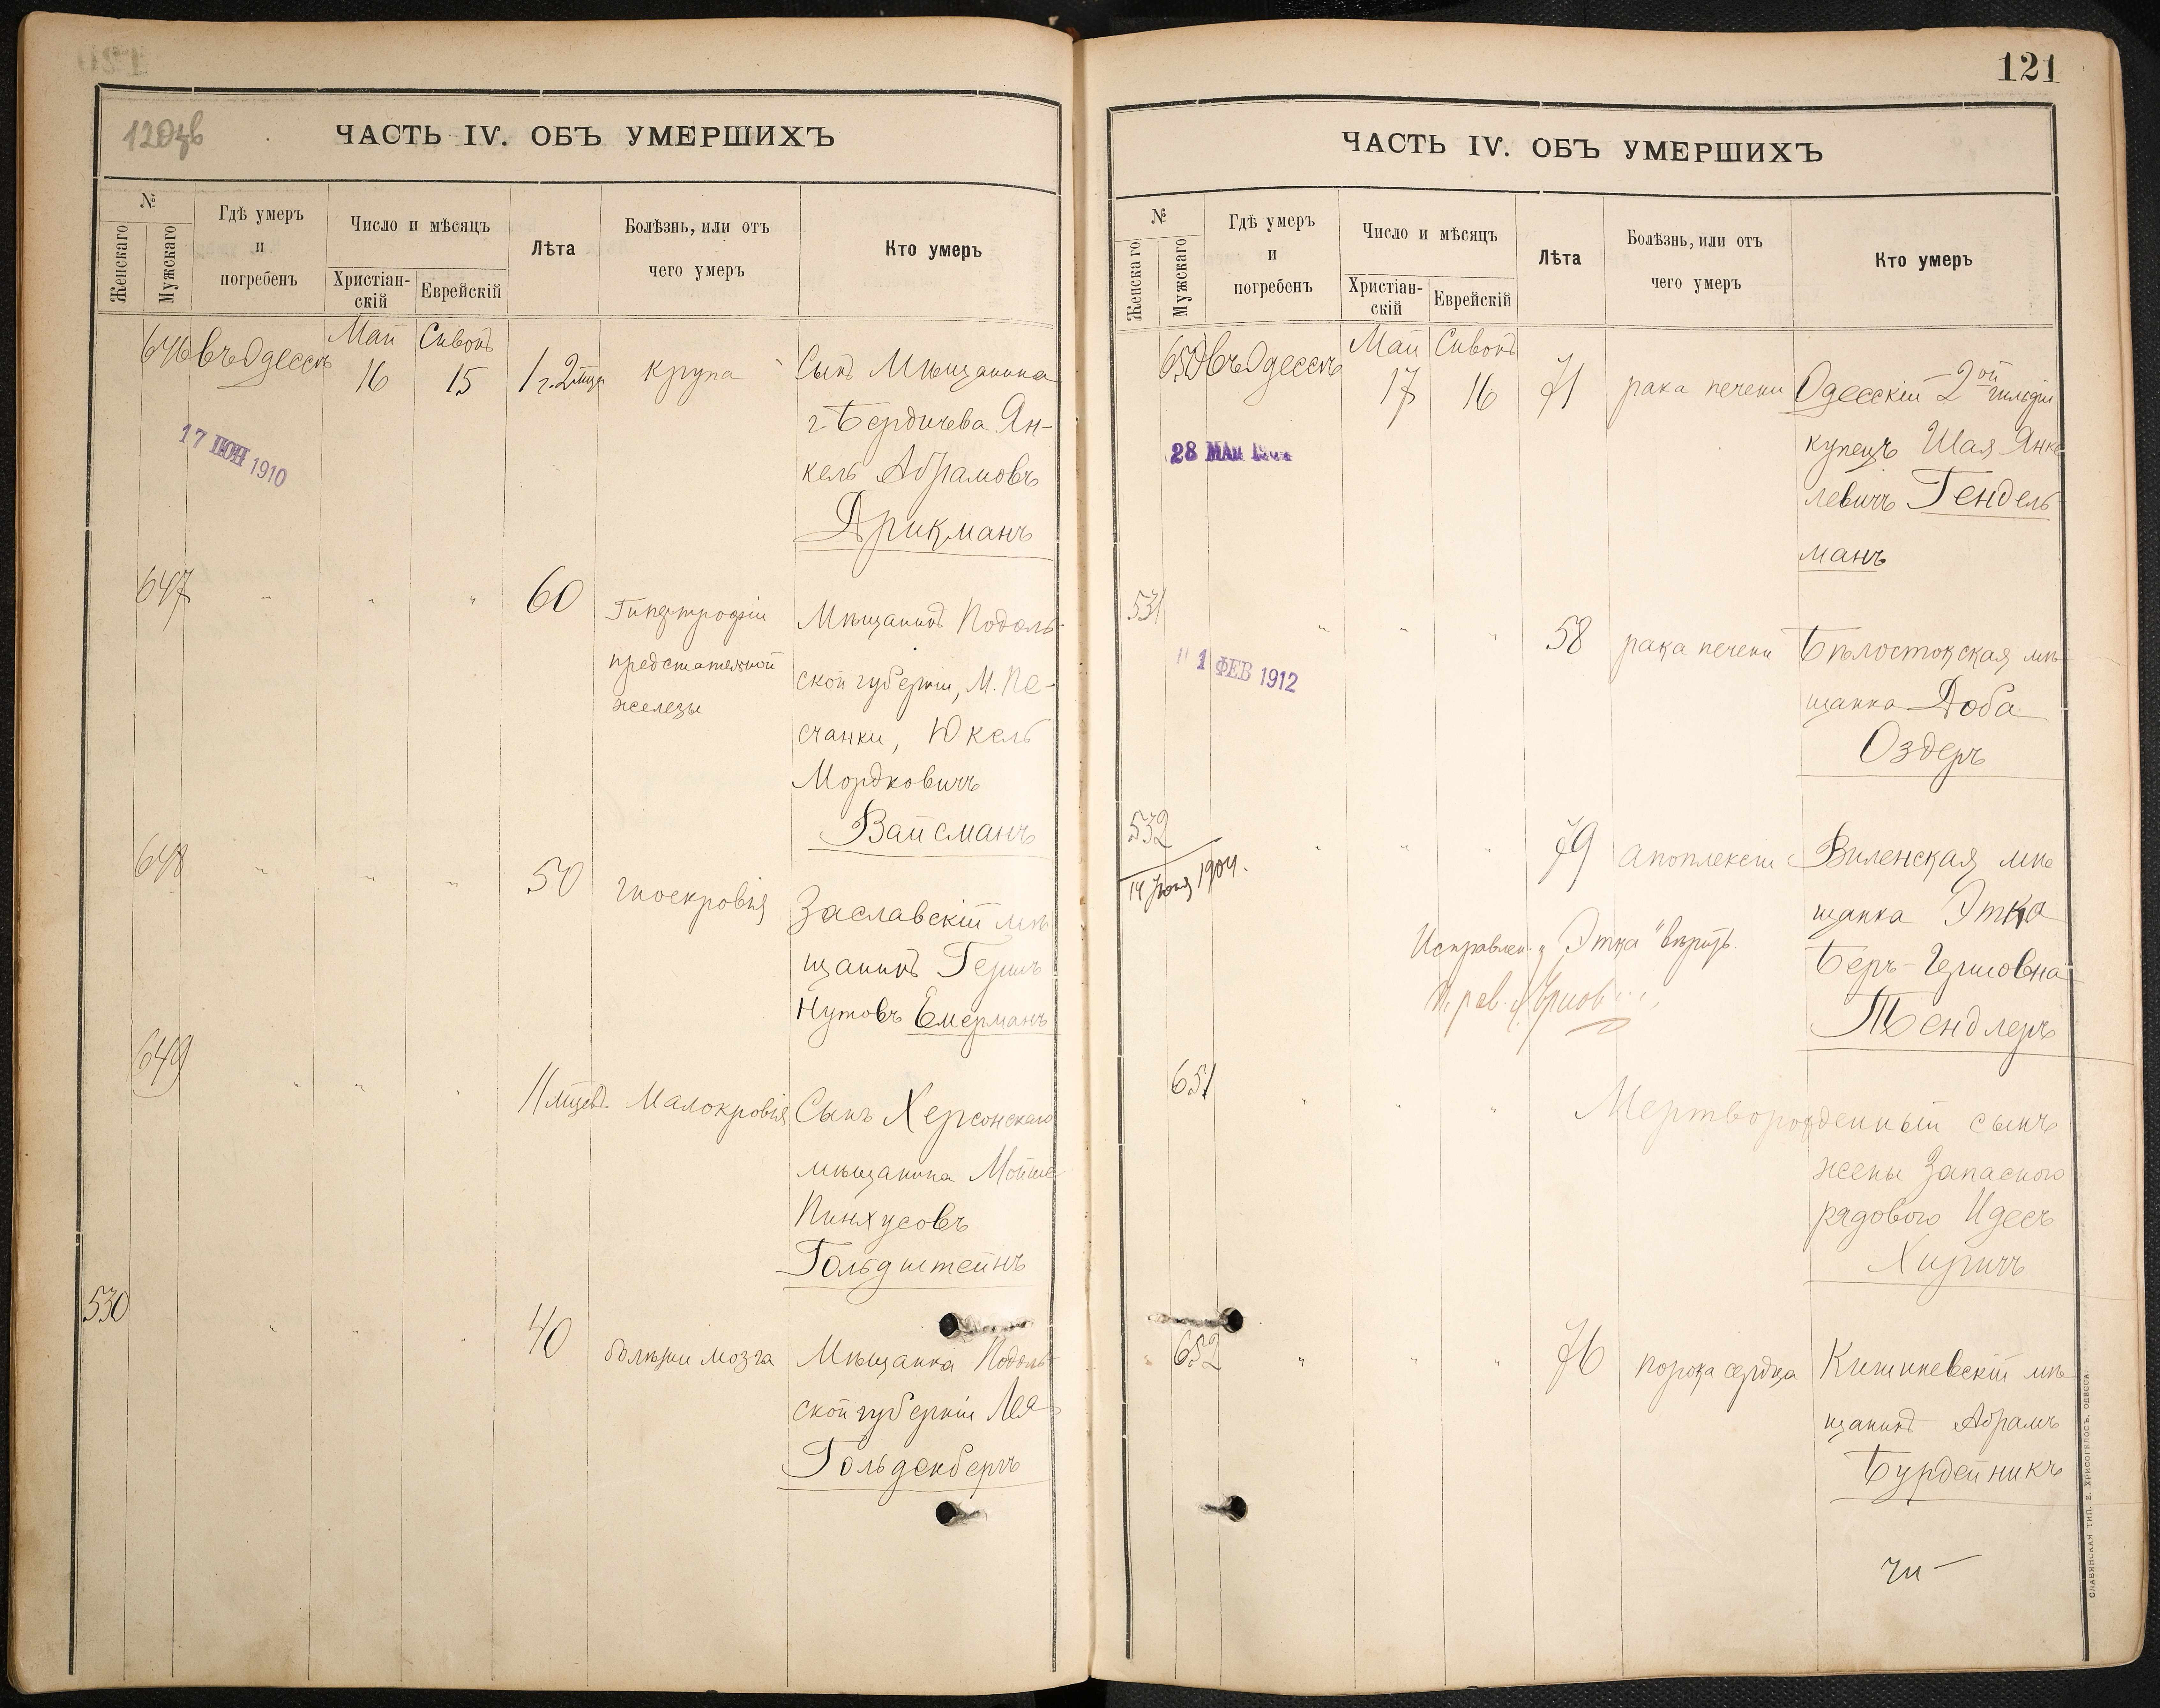 120 об
ЧАСТЬ IV. ОБЪ УМЕРШИХЪ
№
Женскаго
Мужскаго
Гдѣ умеръ
и
погребенъ
Число и мѣсяцъ
Христіан-
скій
Еврейскій
Лѣта
Болѣзнь, или отъ
чего умеръ
Кто умеръ
646 въ Одессѣ Май 16 Сивонъ 15 1 г. 2 мца крупа Сынъ Мѣщанина
г. Бердичева Ян-
кель Абрамовъ
Дрикманъ
17 ІЮН 1910
647 " " " 60 Гипертрофіи Мѣщанинъ Подоль-
предстательной ской губерніи, М. Пе-
железы счанки, Юкель
Мордковичъ
Вайсманъ
648 " " " 50 гноекровія Заславскій мѣ
щанинъ Гершъ
Нутовъ Емерманъ
649 " " " 11 мцевъ Малокровія Сынъ Херсонскаго
мѣщанина Мойше
Пинхусовъ
Гольдштейнъ
530 " " " 40 болѣзни мозга Мѣщанка Подоль-
ской губерніи Лея
Гольденбергъ
121
ЧАСТЬ IV. ОБЪ УМЕРШИХЪ
№
Женскаго
Мужскаго
Гдѣ умеръ
и
погребенъ
Число и мѣсяцъ
Христіан-
скій
Еврейскій
Лѣта
Болѣзнь, или отъ
чего умеръ
Кто умеръ
650 въ Одессѣ Май 17 Сивонъ 16 71 рака печени Одесскій 2ой гильдіи
купецъ Шая Янке
левичъ Гендель
манъ
28 МАЯ
531 " " " 58 рака печени Бѣлостокская мѣ-
щанка Доба
Оздеръ
1 ФЕВ 1912
532 " " " 79 апоплексіи Виленская мѣ
щанка Этка
Беръ-Гершовна
Тендлеръ
14 1904.
Исправлен. "Этка" вѣрить.
651 " " " Мертворожденный сынъ
жены Запасного
рядового Идесъ
Хиричъ
652 " " " 76 порока сердца Кишиневскій мѣ
щанинъ Абрамъ
Бурдейникъ
СЛАВЯНСКАЯ ТИП. Е. ХРИСОГЕЛОСЪ, ОДЕССА.